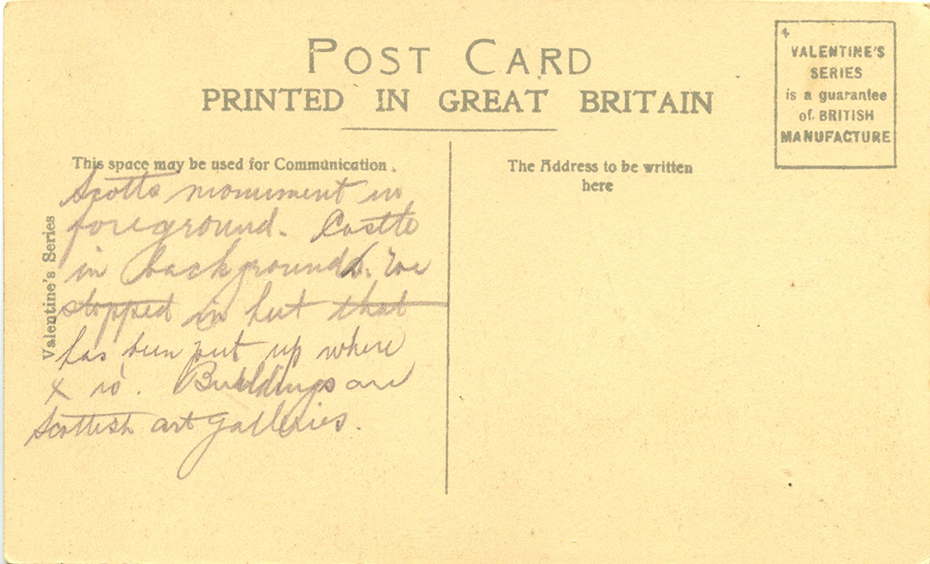 POST CARD
PRINTED IN GREAT BRITAIN
VALENTINE'S
SERIES
is a guarantee
of BRITISH
MANUFACTURE
This space may be used for Communication.
The Address to be written
here
Valentine's Series
Scotts monument in
foreground. Castle
in background. We
stopped in hut that
has been put up where
x is. Buildings are
Scottish art galleries.